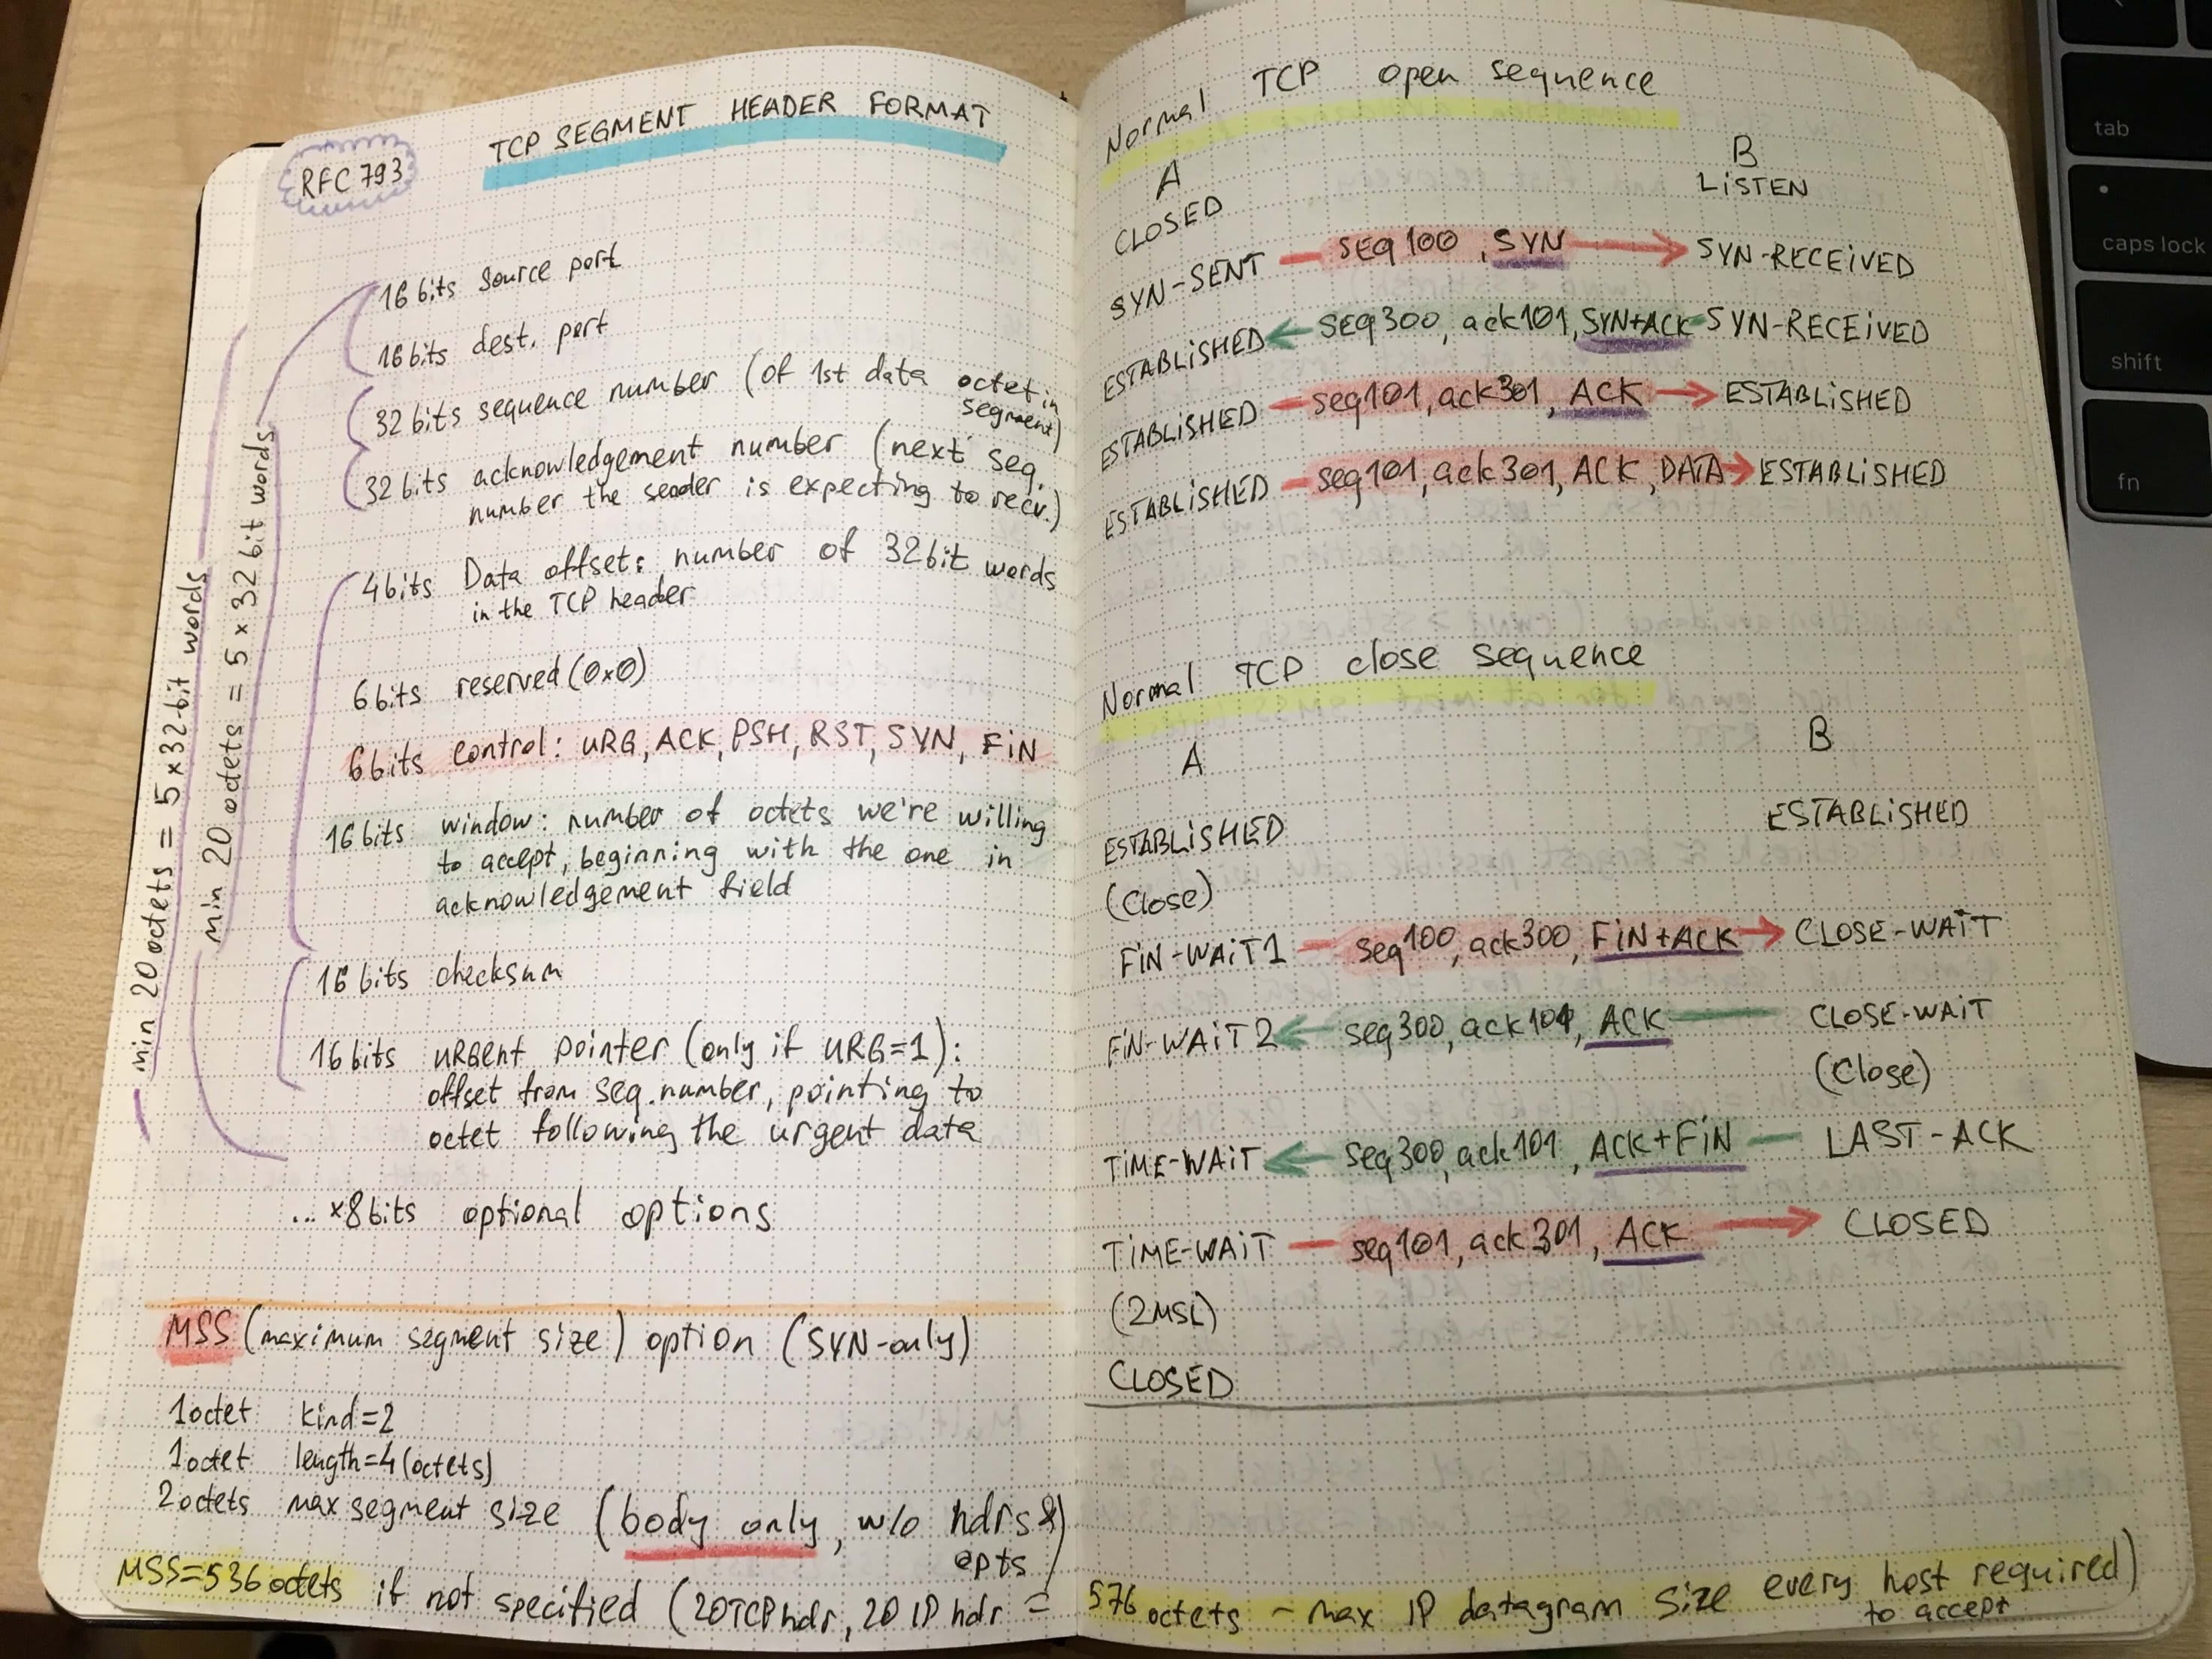 RFC 793
TCP SEGMENT HEADER FORMAT
16 bits source port
16 bits dest. port
32 bits sequence number (of 1st data octet in
segment)
32 bits acknowledgement number (next seq.
number the sender is expecting to recv.)
4 bits Data offset: number of 32 bit words
in the TCP header
6 bits reserved (0x0)
6 bits control: URG, ACK, PSH, RST, SYN, FiN
16 bits window: number of octets we're willing
to accept, beginning with the one in
acknowledgement field
16 bits checksum
16 bits URGent pointer (only if URG=1):
offset from seq. number, pointing to
octet following the urgent data
... x8 bits optional options
min 20 octets = 5 x 32-bit words
min 20 octets = 5 x 32 bit words
MSS (maximum segment size) option (SYN-only)
1 octet kind=2
1 octet length=4 (octets)
2 octets max segment size (body only, w/o hdrs &
opts)
MSS=536 octets if not specified (20 TCP hdr, 20 IP hdr =
Normal TCP open sequence
A B
CLOSED LiSTEN
SYN-SENT seq 100, SYN SYN-RECEiVED
ESTABLiSHED seq 300, ack 101, SYN+ACK SYN-RECEiVED
ESTABLiSHED seq 101, ack 301, ACK ESTABLiSHED
ESTABLiSHED seq 101, ack 301, ACK, DATA ESTABLiSHED
Normal TCP close sequence
A B
ESTABLiSHED ESTABLiSHED
(Close)
FiN-WAiT 1 seq 100, ack 300, FiN+ACK CLOSE-WAiT
FiN-WAiT 2 seq 300, ack 101, ACK CLOSE-WAiT
(Close)
TiME-WAiT seq 300, ack 101, ACK+FiN LAST-ACK
TiME-WAiT seq 101, ack 301, ACK CLOSED
(2MSL)
CLOSED
576 octets - max IP datagram size every host required)
to accept
tab
caps lock
shift
fn